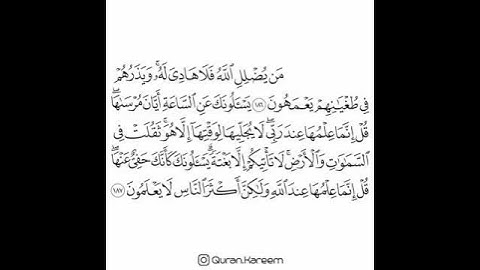 مَن يُضْلِلِ ٱللَّهُ فَلَا هَادِىَ لَهُۥ ۚ وَيَذَرُهُمْ
فِى طُغْيَـٰنِهِمْ يَعْمَهُونَ ١٨٦ يَسْـَٔلُونَكَ عَنِ ٱلسَّاعَةِ أَيَّانَ مُرْسَىٰهَا ۖ
قُلْ إِنَّمَا عِلْمُهَا عِندَ رَبِّى ۖ لَا يُجَلِّيهَا لِوَقْتِهَآ إِلَّا هُوَ ۚ ثَقُلَتْ فِى
ٱلسَّمَـٰوَٰتِ وَٱلْأَرْضِ ۚ لَا تَأْتِيكُمْ إِلَّا بَغْتَةً ۗ يَسْـَٔلُونَكَ كَأَنَّكَ حَفِىٌّ عَنْهَا ۖ
قُلْ إِنَّمَا عِلْمُهَا عِندَ ٱللَّهِ وَلَـٰكِنَّ أَكْثَرَ ٱلنَّاسِ لَا يَعْلَمُونَ ١٨٧
Quran.Kareem